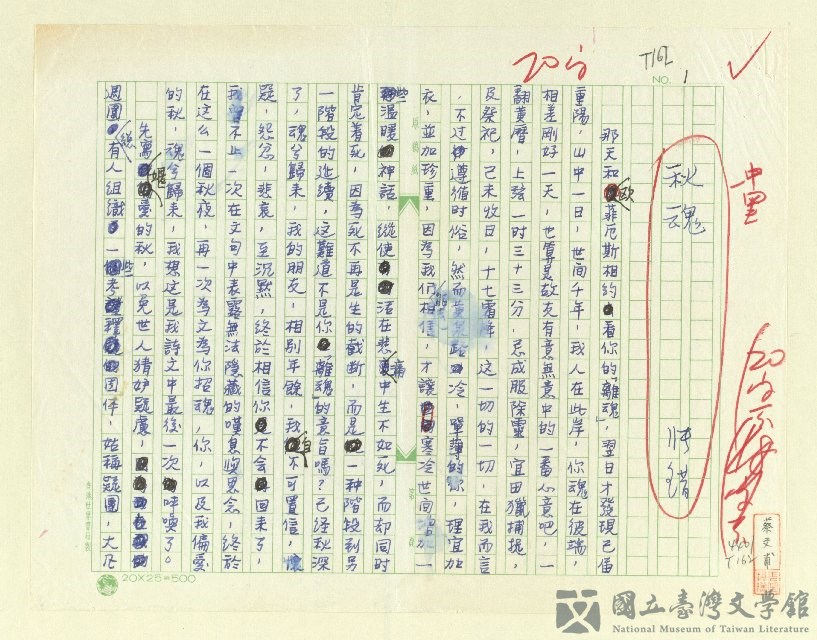 20分
T162
NO. 1
中里
秋魂
張錯
那天和歐菲厄斯相約看你的「離魂」,翌日才發現已屆
重陽,山中一日,世間千年,我人在此岸,你魂在彼端,
相差剛好一天,也算是故友有意無意中的一番心意吧,一
翻黃曆,上弦一時三十三分,忌成服除靈,宜田獵捕捉,
及祭祀,己未收日,十七霜降,這一切的一切,在我而言
,不過遵循時俗,然而 冷,單薄的你,理宜加
衣,並加珍重,因為我們相信,才能讓寒冷世間增加一
些溫暖神話,縱使活在悲痛中生不如死,而却同時
肯定着死,因為死不再是生的截斷,而是一種階段到另
一階段的延續,這難道不是你「離魂」的意旨嗎?已經秋深
了,魂兮歸來,我的朋友,相別年餘,我自不可置信,懷
疑,怨忿,悲哀,至沉默,終於相信你不會再回來了,
我不止一次在文句中表露無法隱藏的嘆息與思念,終於
在這么一個秋夜,再一次為文為你招魂,你,以及我偏愛
的秋,魂兮歸來,我想這是我詩文中最後一次呼喚了。
先寫偏愛的秋,以免世人猜妒疑慮,
週圍總有人組織一些考釋的团体,姑稱疑團,大凡
20X25=500
蔡文甫
4401
T162
國立臺灣文學館
National Museum of Taiwan Literature